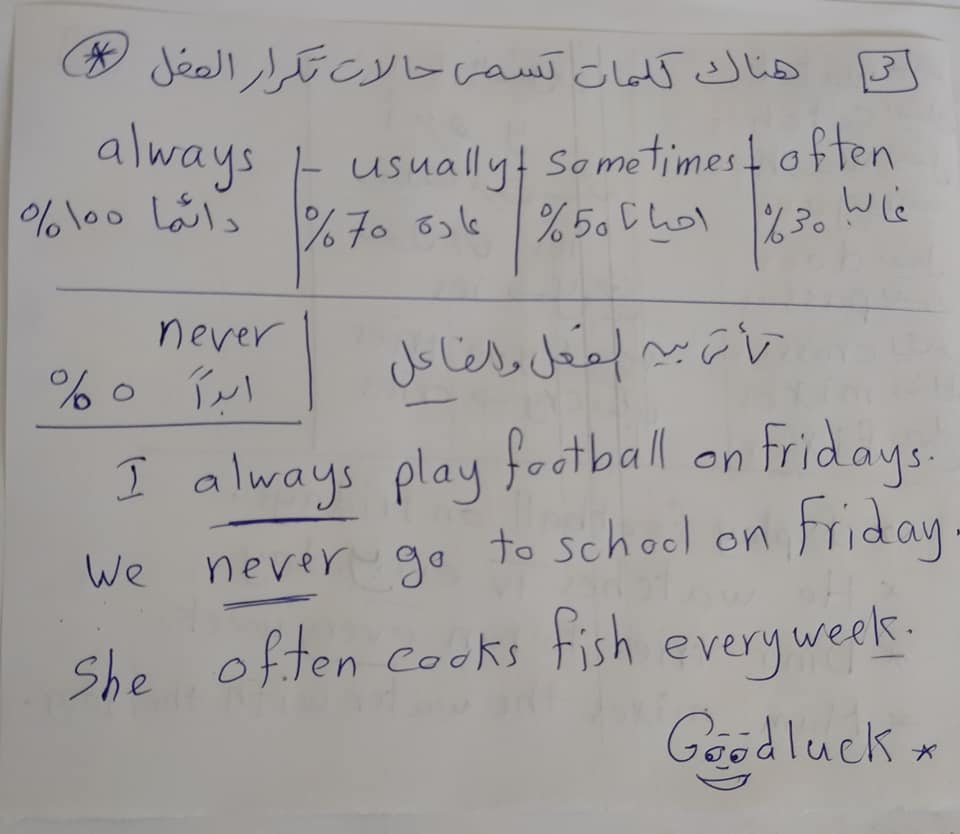 [3] هناك كلمات تسمى حالات تكرار الفعل *
always | - usually | sometimes | often
%100 دائما | %70 عادة | %50 احيانا | %30 غالبا
never
%0 ابداً
تأتي بين الفعل والفاعل
I always play football on Fridays.
We never go to school on Friday.
She often cooks fish every week.
Good luck *